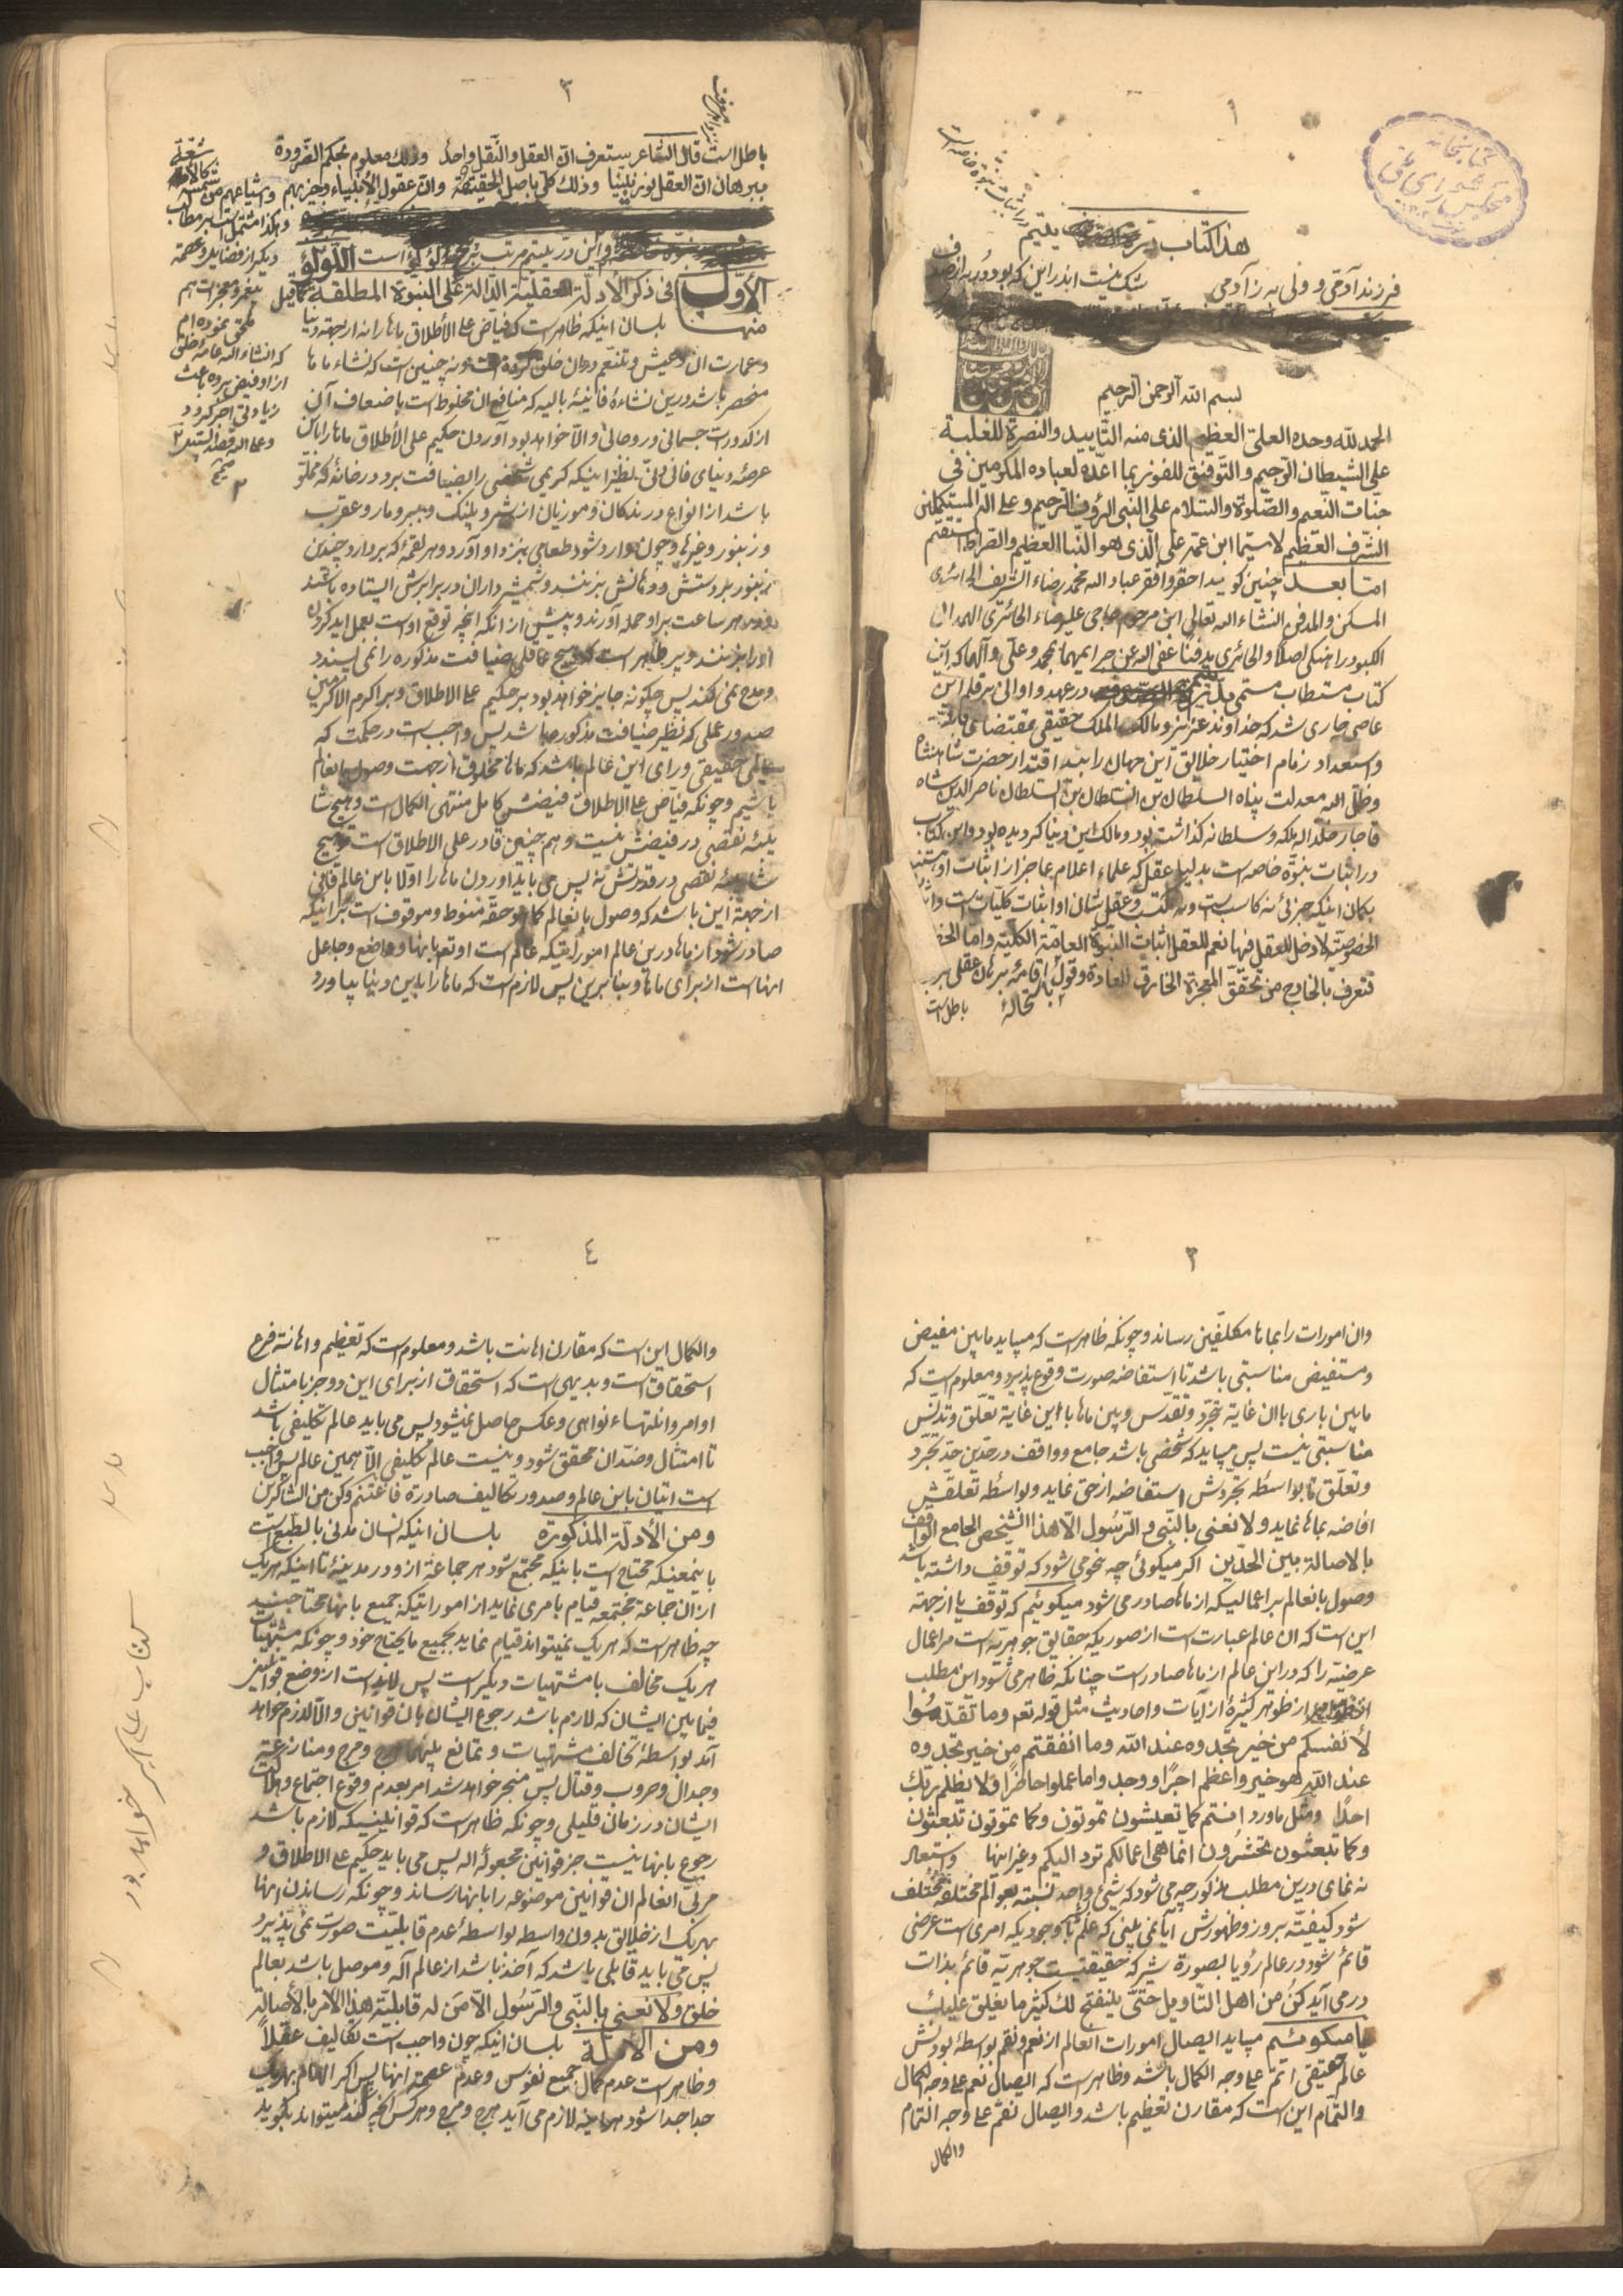 ١
هذا کتاب در یتیم
فرزند آدمی و ولی به ز آدمی
شک نیست اندر این که بود دُر به از صدف
بسم الله الرحمن الرحیم
الحمد لله وحده العلیّ العظیم الذی منه التّأیید والنصرة للغلبة
علی الشیطان الرّجیم والتّوفیق للفوز بما اعدّه لعباده المکرمین فی
جنات النّعیم والصّلوة والسّلام علی النّبی الرؤف الرّحیم وعلی اله المستکملین
الشّرف العظیم لاسیّما ابن عمّه علی الّذی هو النّبأ العظیم والصّراط المستقیم
امّا بعد چنین گوید احقر وافقر عباد الله محمد رضاء الشریف الحائری
المسکن والمدفن انشاء الله تعالی ابن مرحوم حاجی علیرضاء الحائری الهمدانی
اصلا والحائری مدفنًا عفی الله عن جرایمهما بمحمد وعلی وآلهما که این
کتاب مستطاب مسمی بدرّ یتیم در عهد و اوانی بر قلم این
عاصی جاری شد که خداوند عزیز و مالک الملک حقیقی بمقتضای قابلیّة
واستعداد زمام اختیار خلایق این جهان را بید اقتدار حضرت شاهنشاه
وظلّ الله معدلت پناه السلطان بن السّلطان بن السّلطان ناصر الدین شاه
قاجار خلّد الله ملکه وسلطانه گذاشته بود و مالک این دنیا گردیده بود و این کتاب
در اثبات نبوّة خاصه است بدلیل عقل که علماء اعلام عاجز از اثبات او
بگمان اینکه جزئی نه کاسب است و نه مکتسب و عقل شان او اثبات کلیات است
الخصوصیّة لا دخل للعقل فیها نعم للعقل اثبات النبوّة العامّة الکلیّة وامّا
فتعرف بالخارج من تحقّق المعجزة الخارق للعادة وقول اقامهٔ برهان عقلی بر
باطل است
٢
باطل است قال الشاعر ستعرف انّ العقل والنّقل واحدٌ وذلک معلوم بحکم الضّرورة
ببرهان انّ العقل نور نبیّنا وذلک کلّی باصل الحقیقة وانّ عقول الأنبیاء وغیرهم
و این درّ یتیم مرتب بر لؤلؤ است اللؤلؤ
الأوّل فی ذکر الأدلة العقلیّة الدّالة علی النبوّة المطلقة
منها بلسان اینکه ظاهر است که فیّاض علی الأطلاق ماها را نه از جهة دنیا
وعمارت ان وعیش وتنعّم در ان خلق کرده است و نه چنین است که نشاء ماها
منحصر باشد درین نشاءهٔ فانیهٔ بالیه که منافع ان مخلوط است باضعاف آن
از کدورات جسمانی و روحانی والّا خواهد بود آوردن حکیم علی الأطلاق ماها را باین
عرصهٔ دنیای فانی دنی نظیر اینکه کریمی شخصی را بضیافت برد در خانهٔ که مملوّ
باشد از انواع درندگان و موذیان از شیر و پلنک و ببر و مار و عقرب
و زنبور و غیرها و چون وارد شود طعامی نزد او آورد و هر لقمهٔ که بردارد چندین
زنبور بر دستش و دهانش بزنند و شمشیر داران در برابرش ایستاده باشند
و در هر ساعت بر او حمله آورند و پیش از انکه انچه توقع او است بعمل اید کردن
او را بزنند و پر ظاهر است که هیچ عاقلی ضیافت مذکوره را نمی پسندد
و مدح نمی کند پس چگونه جایز خواهد بود بر حکیم علی الاطلاق و بر اکرم الاکرمین
صدور عملی که نظیر ضیافت مذکوره باشد پس واجب است در حکمت که
عالمی حقیقی ورای این عالم باشد که ماها مخلوق از جهت وصول بانعالم
باشیم و چونکه فیّاض علی الاطلاق فیضش کامل منتهی الکمال است و هیچ شا
یبهٔ نقصی در فیضش نیست و هم چنین قادر علی الاطلاق است و هیچ
شایبهٔ نقصی در قدرتش نه پس می باید اوردن ماها را اولا باین عالم فانی
از جهة این باشد که وصول بانعالم کما هو حقه منوط و موقوف است بر اینکه
صادر شود از ماها درین عالم اموراتیکه عالم است او تعم بانها و واضع و جاعل
انها است از برای ماها و بنابرین پس لازم است که ماها را بدین دنیا بیاورد
٣
وان امورات را بماها مکلفین رساند و چونکه ظاهر است که میباید مابین مفیض
و مستفیض مناسبتی باشد تا استفاضه صورت وقوع پذیرد و معلوم است که
مابین باری باان غایة تجرّد و تقدّس و بین ماها بااین غایة تعلّق و تدنّس
مناسبتی نیست پس میباید که شخصی باشد جامع و واقف در حدّین حدّ تجرّد
و تعلّق تا بواسطهٔ تجرّدش استفاضه از حق نماید و بواسطهٔ تعلقش
افاضه بماها نماید ولا نعنی بالنّبی والرّسول الّا هذا الشخص الجامع الواقف
بالاصالة بین الحدّین اکر میکوئی چه نحو می شود که توقّف داشته باشد
وصول بانعالم بر اعمالیکه از ماها صادر می شود میکوئیم که توقّف یا از جهة
این است که ان عالم عبارت است از صوریکه حقایق جوهریّه است مر اعمال
عرضیّه را که در این عالم از ماها صادر است چنانکه ظاهر می شود این مطلب
از ظواهر کثیرهٔ از آیات و احادیث مثل قوله تعم وما تقدّموا
لأنفسکم من خیر تجدوه عند الله وما انفقتم من خیر تجدوه
عند الله هو خیر واعظم اجرًا ووجدوا ما عملوا حاضرًا ولا یظلم ربّک
احدًا ومثل ماورد انتم کما تعیشون تموتون وکما تموتون تبعثون
وکما تبعثون تحشرون انّما هی اعمالکم تردّ الیکم وغیر اینها
نه نمای درین مطلب مذکور چه می شود که شیئ واحد نسبته بعوالم مختلفه مختلف
شود کیفیّة بروز و ظهورش آیا نمی بینی که علم باوجودیکه امری است عرضی
قائم شود در عالم رؤیا بصورة شیر که حقیقتیست جوهریّه قائم بذات
در می آید کن من اهل التّاویل حتّی ینفتح لک کثیر ما یغلق علیک
یا میکوئیم میباید ایصال امورات انعالم از نعم و نقم بواسطهٔ بودنش
عالم حقیقی اتمّ علی وجه الکمال باشد و ظاهر است که ایصال نعم علی وجه الکمال
والتّمام این است که مقارن تعظیم باشد و ایصال نقم علی وجه التمام
والکمال
٤
والکمال این است که مقارن اهانت باشد و معلوم است که تعظیم و اهانة فرع
استحقاق است و بدیهی است که استحقاق از برای این دو جز بامتثال
اوامر و انتهاء نواهی و عکس حاصل نمیشود پس می باید عالم تکلیفی باشد
تا امتثال و ضدّ ان محقق شود و نیست عالم تکلیفی الّا همین عالم پس واجب
است اتیان باین عالم و صدور تکالیف صادره فاغتنم وکن من الشاکرین
ومن الأدلّة المذکورة بلسان اینکه انسان مدنی بالطّبع است
باینمعنیکه محتاج است باینکه مجتمع شود هر جماعة ازو در مدینهٔ تا اینکه هریک
ازان جماعة مجتمعه قیام بامری نماید از اموراتیکه جمیع بانها محتاجند
چه ظاهر است که هریک نمیتواند قیام نماید بجمیع مایحتاج خود و چونکه مشتهیات
هریک مخالف با مشتهیات دیگر است پس لابد است از وضع قوانین
فیما بین ایشان که لازم باشد رجوع ایشان بان قوانین والّا لازم خواهد
آمد بواسطهٔ تخالف مشتهیات و تمانع بینهما هرج و مرج و منازعة
و جدال و حروب و قتال پس منجر خواهد شد امر بعدم وقوع اجتماع و هلاک
ایشان در زمان قلیلی و چونکه ظاهر است که قوانینیکه لازم باشد
رجوع بانها نیست جز قوانین مجعولهٔ اله پس می باید حکیم علی الاطلاق و
مربّی انعالم ان قوانین موضوعه را بانها رساند و چونکه رساندن انها
بهریک از خلایق بدون واسطه بواسطهٔ عدم قابلیّت صورت نمی پذیرد
پس می باید قابلی باشد که آخذ باشد از عالم آله و موصل باشد بعالم
خلق ولا نعنی بالنّبی والرّسول الّا من له قابلیّة هذا الامر بالأصالة
ومن الأدلة بلسان اینکه چون واجب است تکالیف عقلاً
و ظاهر است عدم کمال جمیع نفوس و عدم عصمة انها پس اکر الهام بهریک
جدا جدا شود هراینه لازم می آید هرج و مرج و هرکس انچه کند میتواند بگوید
کتاب علی اکبر خواهد بود